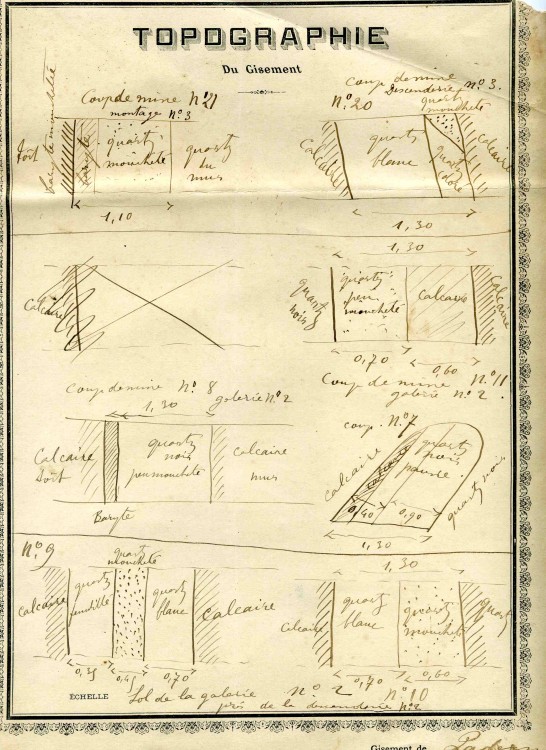 TOPOGRAPHIE
Du Gisement
Coup de mine N° 21
montage N° 3
toit
baryte
quartz
moucheté
quartz
du
mur
1,10
coup de mine
Descenderie N° 3.
N° 20
quartz
moucheté
Calcaire
quartz
blanc
quartz
doré
calcaire
1,30
Calcaire
1,30
quartz
noir
quartz
peu
moucheté
Calcaire
Calcaire
0,70
0,60
Coup de mine N° 11
galerie N° 2.
Coup de mine N° 8
galerie N° 2
1,30
Calcaire
toit
quartz
noir
peu moucheté
calcaire
mur
Baryte
coup. N° 7
calcaire
calcaire
quartz
noir
pauvre
quartz noir
0,40
0,90
1,30
N° 9
quartz
moucheté
calcaire
quartz
quartz
blanc
Calcaire
0,35
0,45
0,70
1,30
Calcaire
quartz
blanc
quartz
moucheté
quartz
0,70
0,60
N° 10
ÉCHELLE
Sol de la galerie N° 2
près de la descenderie N° 2
Gisement de